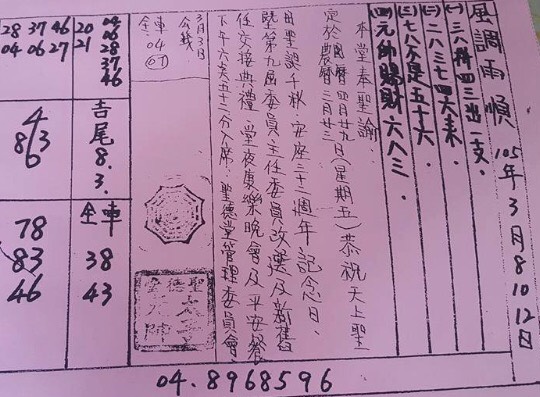 風調雨順 105年3月8 10 12日
(一)三八斜四三出一支.
(二)二八三七四六來.
(三)七八不是五十六.
(四)元帥賜財六八三.
本堂奉聖諭:
定於國曆四月廿九日(星期五)恭祝天上聖
農曆三月廿三
母聖誕千秋.安座十二週年記念日.
暨第九屆委員主任委員改選及新舊
任交接典禮.當夜康樂晚會及平安餐
下午六点五十二分入席.聖德堂管理委員會
3月3日
公錢
全車
04
67
20 04
21 06
28
37
46
28 37 46
04 06 27
吉尾
8.
3.
4
8 3
6
全車
38
43
78
83
46
04.8968596